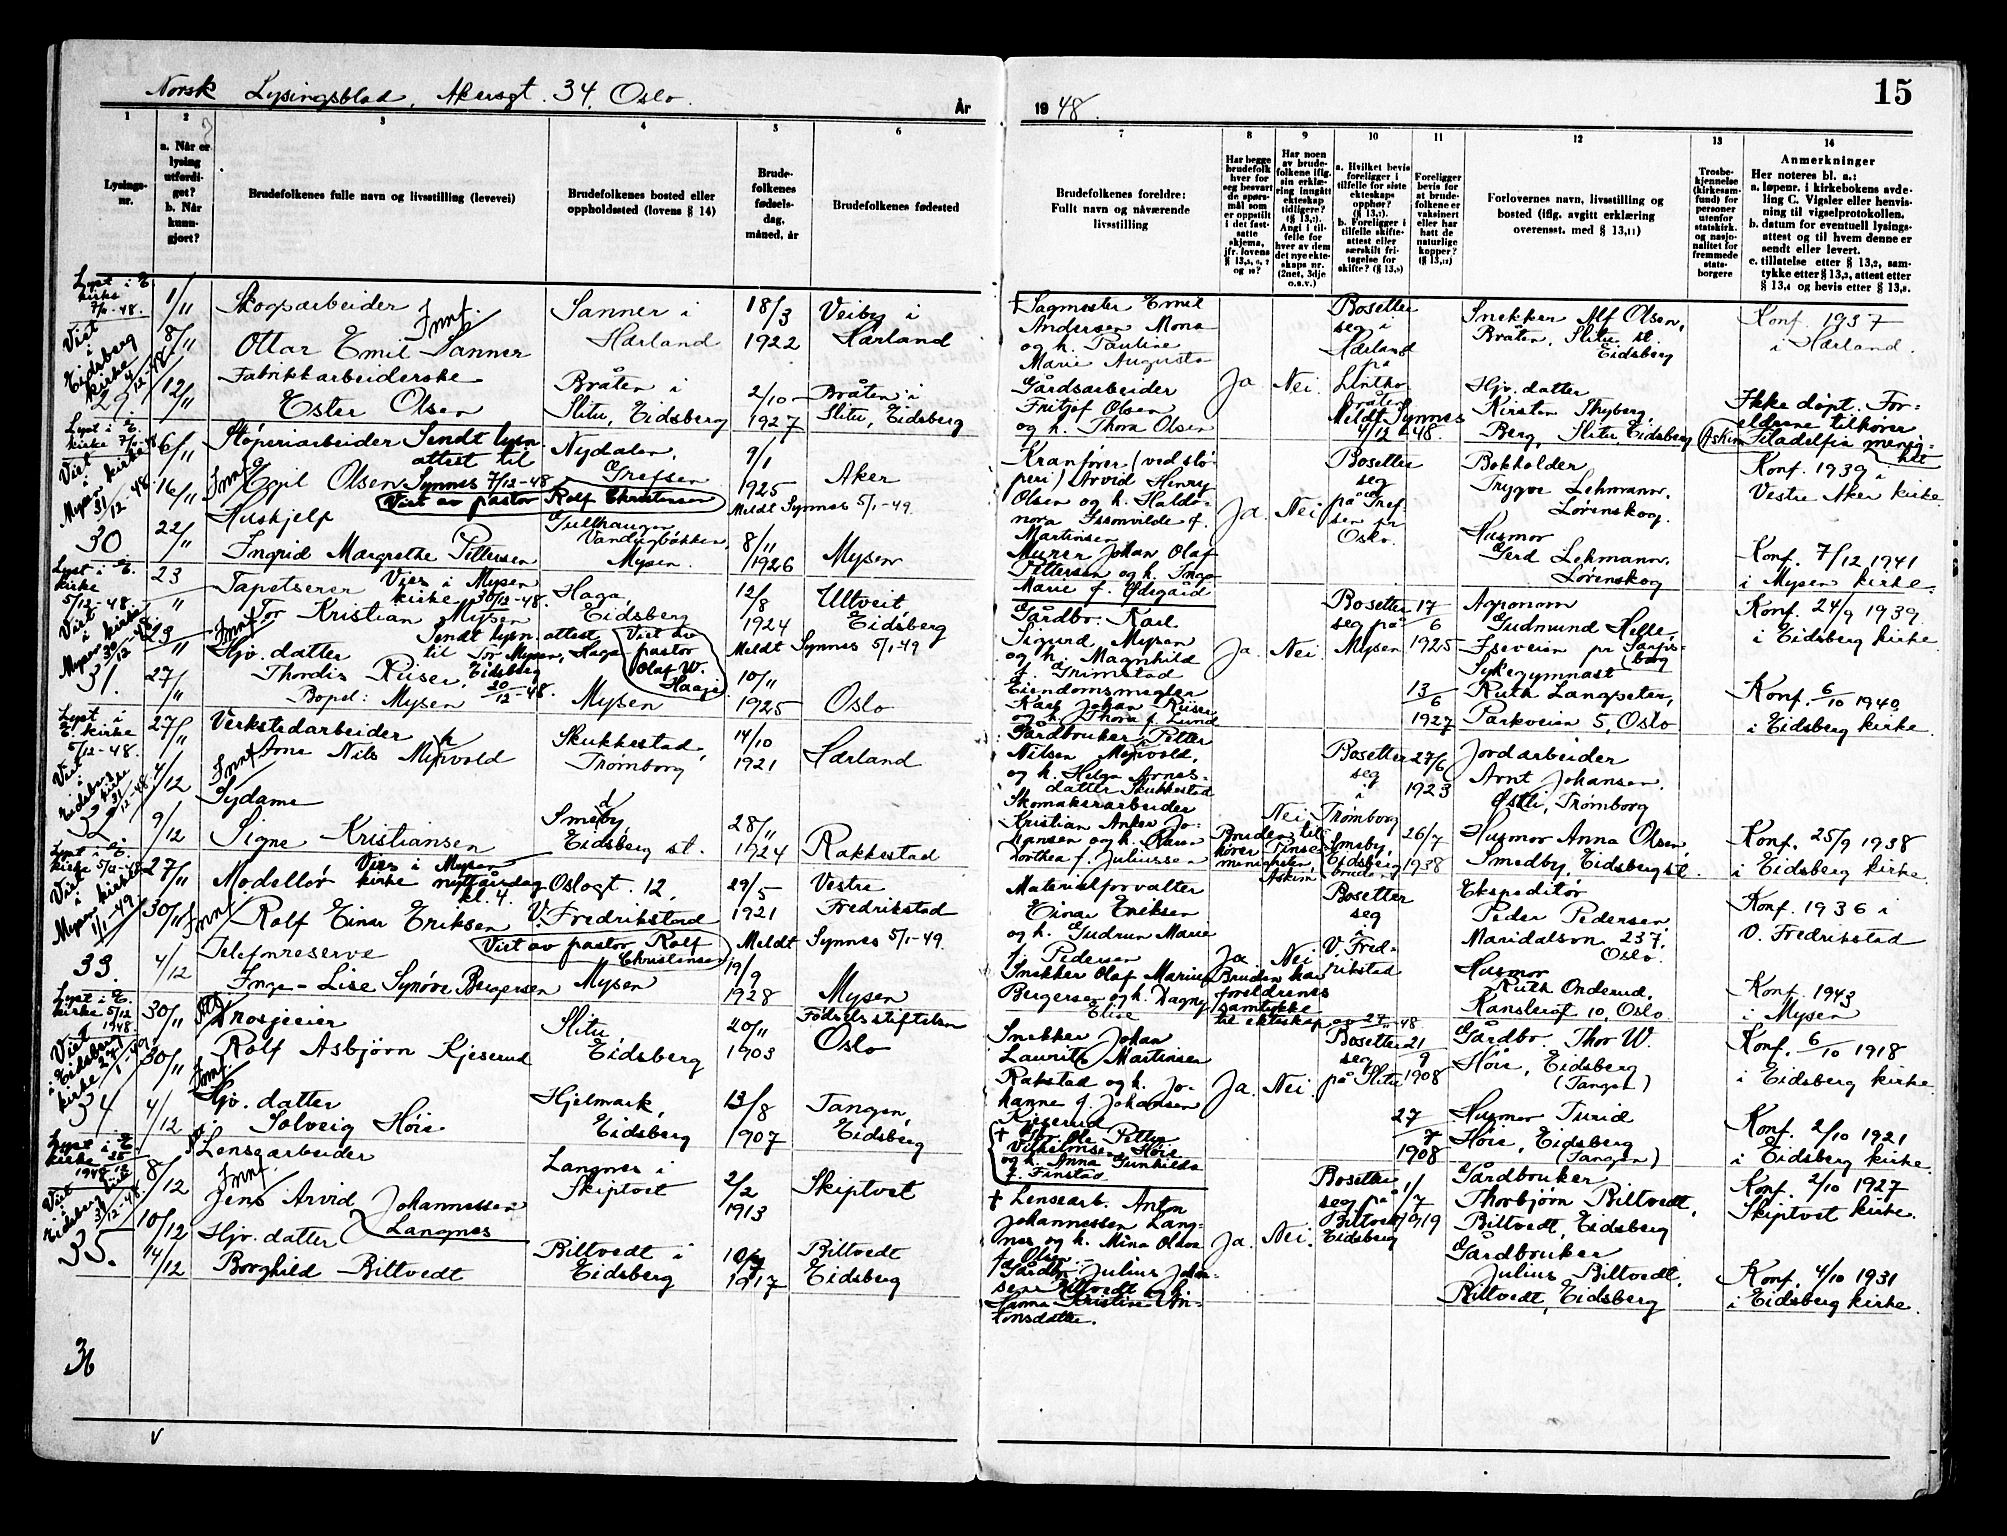 Norsk Lysingsblad, Akersgt. 34, Oslo.
År
1948.
15
1
2
3
4
5
6
7
8
9
10
11
12
13
14
Lysings-
nr.
a. Når er
lysing
utferdi-
get?
b. Når
kunn-
gjort?
Brudefolkenes fulle navn og livsstilling (levevei)
Brudefolkenes bosted eller
oppholdssted (lovens § 14)
Brude-
folkenes
fødsels-
dag,
måned, år
Brudefolkenes fødested
Brudefolkenes foreldre:
Fullt navn og nåværende
livsstilling
Har begge
brudefolk
hver for
seg besvart
de spørs-
mål som
er oppstilt
i det fast-
satte
skjema,
jfr. lovens
Har noen
av brude-
folkene iflg.
sin erklæ-
ring inngått
ekteskap
tidligere?
Angi i til-
felle for
hver av dem
det nye ekte-
skaps nr.
(2net, 3dje
o.s.v.)
a. Hvilket bevis
foreligger i
tilfelle for siste
ekteskaps
opphør?
b. Foreligger i
tilfelle skifte-
attest eller
særskilt fri-
tagelse for
skifte?
Foreligger
bevis for
at brude-
folkene er
vaksinert
eller har
hatt de
naturlige
kopper?
Forlovernes navn, livsstilling og
bosted (iflg. avgitt erklæring
overensst. med § 13,11)
Trosbe-
kjennelse
(kirkesam-
fund) for
personer
utenfor
statskirk.
og nasjo-
nalitet for
fremmede
stats-
borgere
Anmerkninger
Her noteres bl. a.:
a. løpenr. i kirkebokens avde-
ling C. Vigsler eller henvis-
ning til vigselprotokollen.
b. datum for eventuell lysings-
attest og til hvem denne er
sendt eller levert.
c. tillatelse etter § 13,2, sam-
tykke etter § 13,3, attest etter
§ 13,4 og bevis etter § 13,8.
Lyst i E.
kirke
7/11-48.
Viet
i
Eidsberg
kirke
4/12-48
29
1/11
8/11
12/11
Skogsarbeider
Innf.
Ottar Emil Sanner
Fabrikkarbeiderske
Ester Olsen
Sanner i
Hærland
Bråten i
Slitu, Eidsberg
18/3
1922
2/10
1927
Veiby i
Hærland
Bråten i
Slitu, Eidsberg
† Sagmester Emil
Andersen Mona
og h. Pauline
Marie Augusta
Gårdsarbeider
Fritjof Olsen
og h. Thora Olsen
Ja
Nei.
Bosetter
seg i
Hærland
på
Bråten
Meldt Synnes
4/12-48.
Snekker Alf Olsen,
Bråten, Slitu st.
Eidsberg
Hjv. datter
Kirsten Thyberg,
Berg, Slitu Eidsberg
Konf. 1937
i Hærland.
Ikke døpt. For-
eldrene tilhører
Filadelfia menig-
het
Askim
Lyst i E.
kirke 7/11-48
Viet
i
Mysen kirke
31/12 48
30
6/11
16/11
22/11
Støperiarbeider Sendt lysn.
attest til
Innf.
Egil Olsen Synnes 7/12-48
Viet av pastor Rolf Christensen
Hushjelp
Ingrid Margrethe Pettersen
Nydalen,
Grefsen
Gullhaugen
Vandugbakken,
Mysen.
9/1
1925
Meldt Synnes 5/1-49.
8/11
1926
Aker
Mysen
Kranfører (ved stø-
peri) Arvid Henry
Olsen og h. Halde-
nora Issonvilde f.
Martinsen
Murer Johan Olaf
Pettersen og h. Inga
Marie f. Ødegård
Ja.
Nei
Bosetter
seg
på Gref-
sen pr
Oslo.
Bokholder
Trygve Lehmann.
Lørenskog.
Husmor
Gerd Lehmann.
Lørenskog
Konf. 1939 i
Vestre Aker kirke
Konf. 7/12 1941
i Mysen kirke.
Lyst i E.
kirke
5/12-48.
Viet
i kirke
Mysen 30/12 48
31.
23/11
23/11
27/11
Tapetserer Vies i Mysen
kirke 30/12-48.
Tor Kristian Mysen
Innf.
Sendt lysn. attest
Hjv. datter til Tor Mysen, Haga
Thordis Reiser, Eidsberg
20/12-48.
Bopel: Mysen
Viet av
pastor
Olaf W.
Haaje
Haga,
Eidsberg
Mysen
12/8
1924
Meldt Synnes 5/1-49
10/11
1925
Ultveit,
Eidsberg
Oslo
Gårdbr. Karl
Sigurd Mysen
og h. Magnhild
f. Grimstad
Eiendomsmegler
Karl Johan Reiser
og h. Thora f. Lund
Ja.
Nei.
Bosetter
seg på
Mysen
17/6
1925
13/6
1927
Agronom
Gudmund Helle,
Iseveien pr Sarps-
borg
Sykegymnast
Ruth Langseter,
Parkveien 5, Oslo
Konf. 24/9 1939.
i Eidsberg kirke.
Konf. 6/10 1940
i Eidsberg kirke.
Lyst i
E. kirke
5/12-48.
Viet
i
Eidsberg
kirke
31/12-48
32
27/11
4/12
9/12
Verkstedarbeider
Arne Nils Myrvold
Innf.
Sydame
Signe Kristiansen
Skukkestad,
Trømborg
Smedby
Eidsberg st.
14/10
1921
28/11
1924
Hærland
Rakkestad
Gårdbruker Petter
Nilsen Myrvold,
og h. Helga Arnes-
datter Skukkestad
Skomakerarbeider
Kristian Anker Jo-
hansen og h. Karen
Dorthea f. Juliussen
Nei
Bruden til-
hører Pinse-
menigheten,
Askim
Bosetter
seg
i
Trømborg
Smeby,
Eidsberg
bruden
27/6
1923
26/7
1938
Jordarbeider
Arnt Johansen,
Østli, Trømborg
Husmor Anna Olsen,
Smedby, Eidsberg st.
Konf. 25/9 1938
i Eidsberg kirke.
Lyst i E.
kirke 5/12-48
Viet
i
Mysen kirke
1/1-49
33.
27/11
30/11
4/12
Modellør Vies i Mysen
kirke nyttårsdag
kl. 4.
Innf.
Rolf Einar Eriksen
Telefonreserve
Viet av pastor Rolf
Christensen
Inga-Lise Synøve Bergersen
Oslogt. 12,
V. Fredrikstad
Mysen
29/5
1921
Meldt Synnes 5/1-49.
19/9
1928
Vestre
Fredrikstad
Mysen
Materialforvalter
Einar Eriksen
og h. Gudrun Marie
f. Pedersen
Snekker Olaf Marius
Bergersen og h. Dagny
Elise
Ja
Nei
Bruden har
foreldrenes
samtykke
til ekteskap av 27/11-48
Bosetter
seg
i
V. Fred-
rikstad
Ekspeditør
Peder Pedersen,
Maridalsvn 237,
Oslo.
Husmor
Ruth Onderud,
Kanslergt 10, Oslo
Konf. 1936 i
V. Fredrikstad
Konf. 1943
i Mysen
Lyst i E.
kirke 5/12
1948.
Viet
i Eidsberg
kirke 27/1-49
34
30/11
30/11
4/12
Drosjeeier
Rolf Asbjørn Kjeserud
Innf.
Hjv. datter
Solveig Høie
Slitu
Eidsberg
Hjelmark,
Eidsberg
20/11
1903
13/8
1907
Fødselsstiftelsen
Oslo
Tangen,
Eidsberg
Snekker Johan
Lauritz Martinsen
Rakstad og h. Jo-
hanne f. Johansen
Kjeserud
† Gbr. Ole Petter
Vilhelmsen Høie
og h. Anna Gunhilda
f. Finstad
Ja
Nei.
Bosetter
seg
på Slitu
21/9
1908
27/7
1908
Gårdbr. Thor W.
Høie, Eidsberg
(Tangen)
Husmor Turid
Høie, Eidsberg
(Tangen)
Konf. 6/10 1918
i Eidsberg kirke
Konf. 2/10 1921
i Eidsberg kirke
Lyst i E.
kirke
1948
Viet
i
Eidsberg kirke
31/12-48.
35.
8/12
10/12
14/12
Lensearbeider
Innf.
Jens Arvid Johannessen
Langnes
Hjv. datter
Borghild Biltvedt
Langnes i
Skiptvet
Biltvedt i
Eidsberg
2/2
1913
1917
Skiptvet
Biltvedt
Eidsberg
† Lensearb. Anton
Johannessen Lang-
nes og h. Mina Olava
f. Olsen
Gårdbr. Julius Johan-
sen Biltvedt og h.
Hanna Kristine An-
tonsdatter.
Ja.
Nei.
Bosetter
seg på
Biltvedt
Eidsberg
1/7
1919
Gårdbruker
Thorbjørn Biltvedt,
Biltvedt, Eidsberg
Gårdbruker
Julius Biltvedt,
Biltvedt, Eidsberg
Konf. 2/10 1927
Skiptvet kirke.
Konf. 4/10 1931
i Eidsberg kirke.
36
v